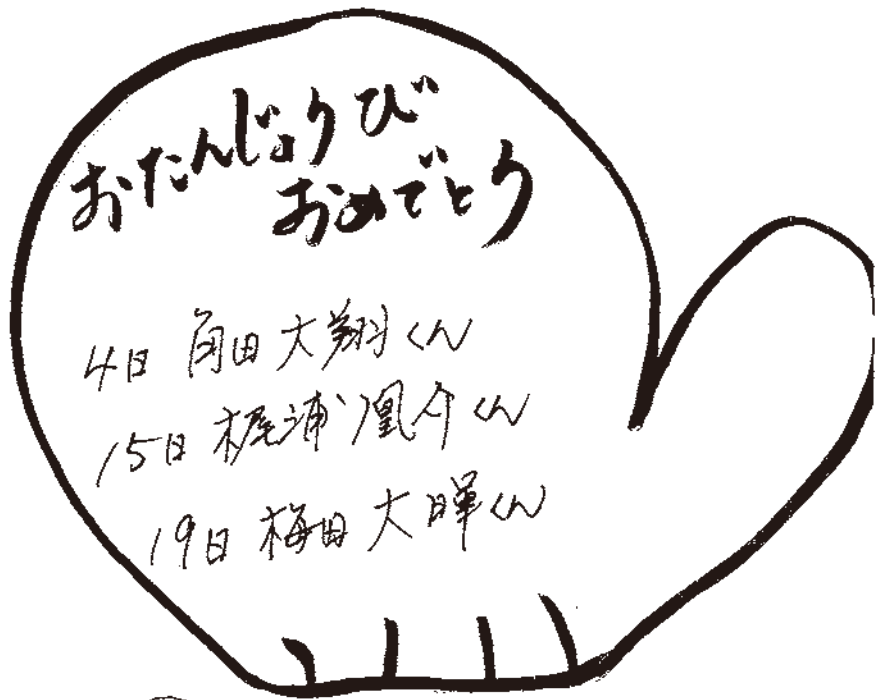 おたんじょうび
おめでとう
4日 角田大翔くん
15日 梶浦凰介くん
19日 梅田大暉くん